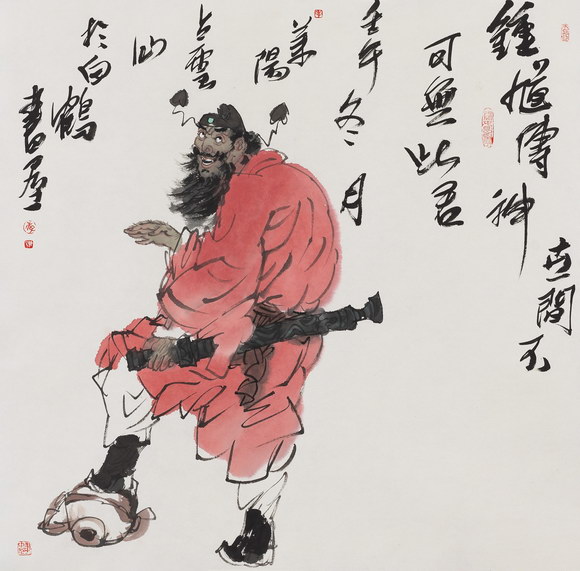 鍾馗傳神
世間不
可無此君
壬午冬月
陽
占雲
於白鶴
書